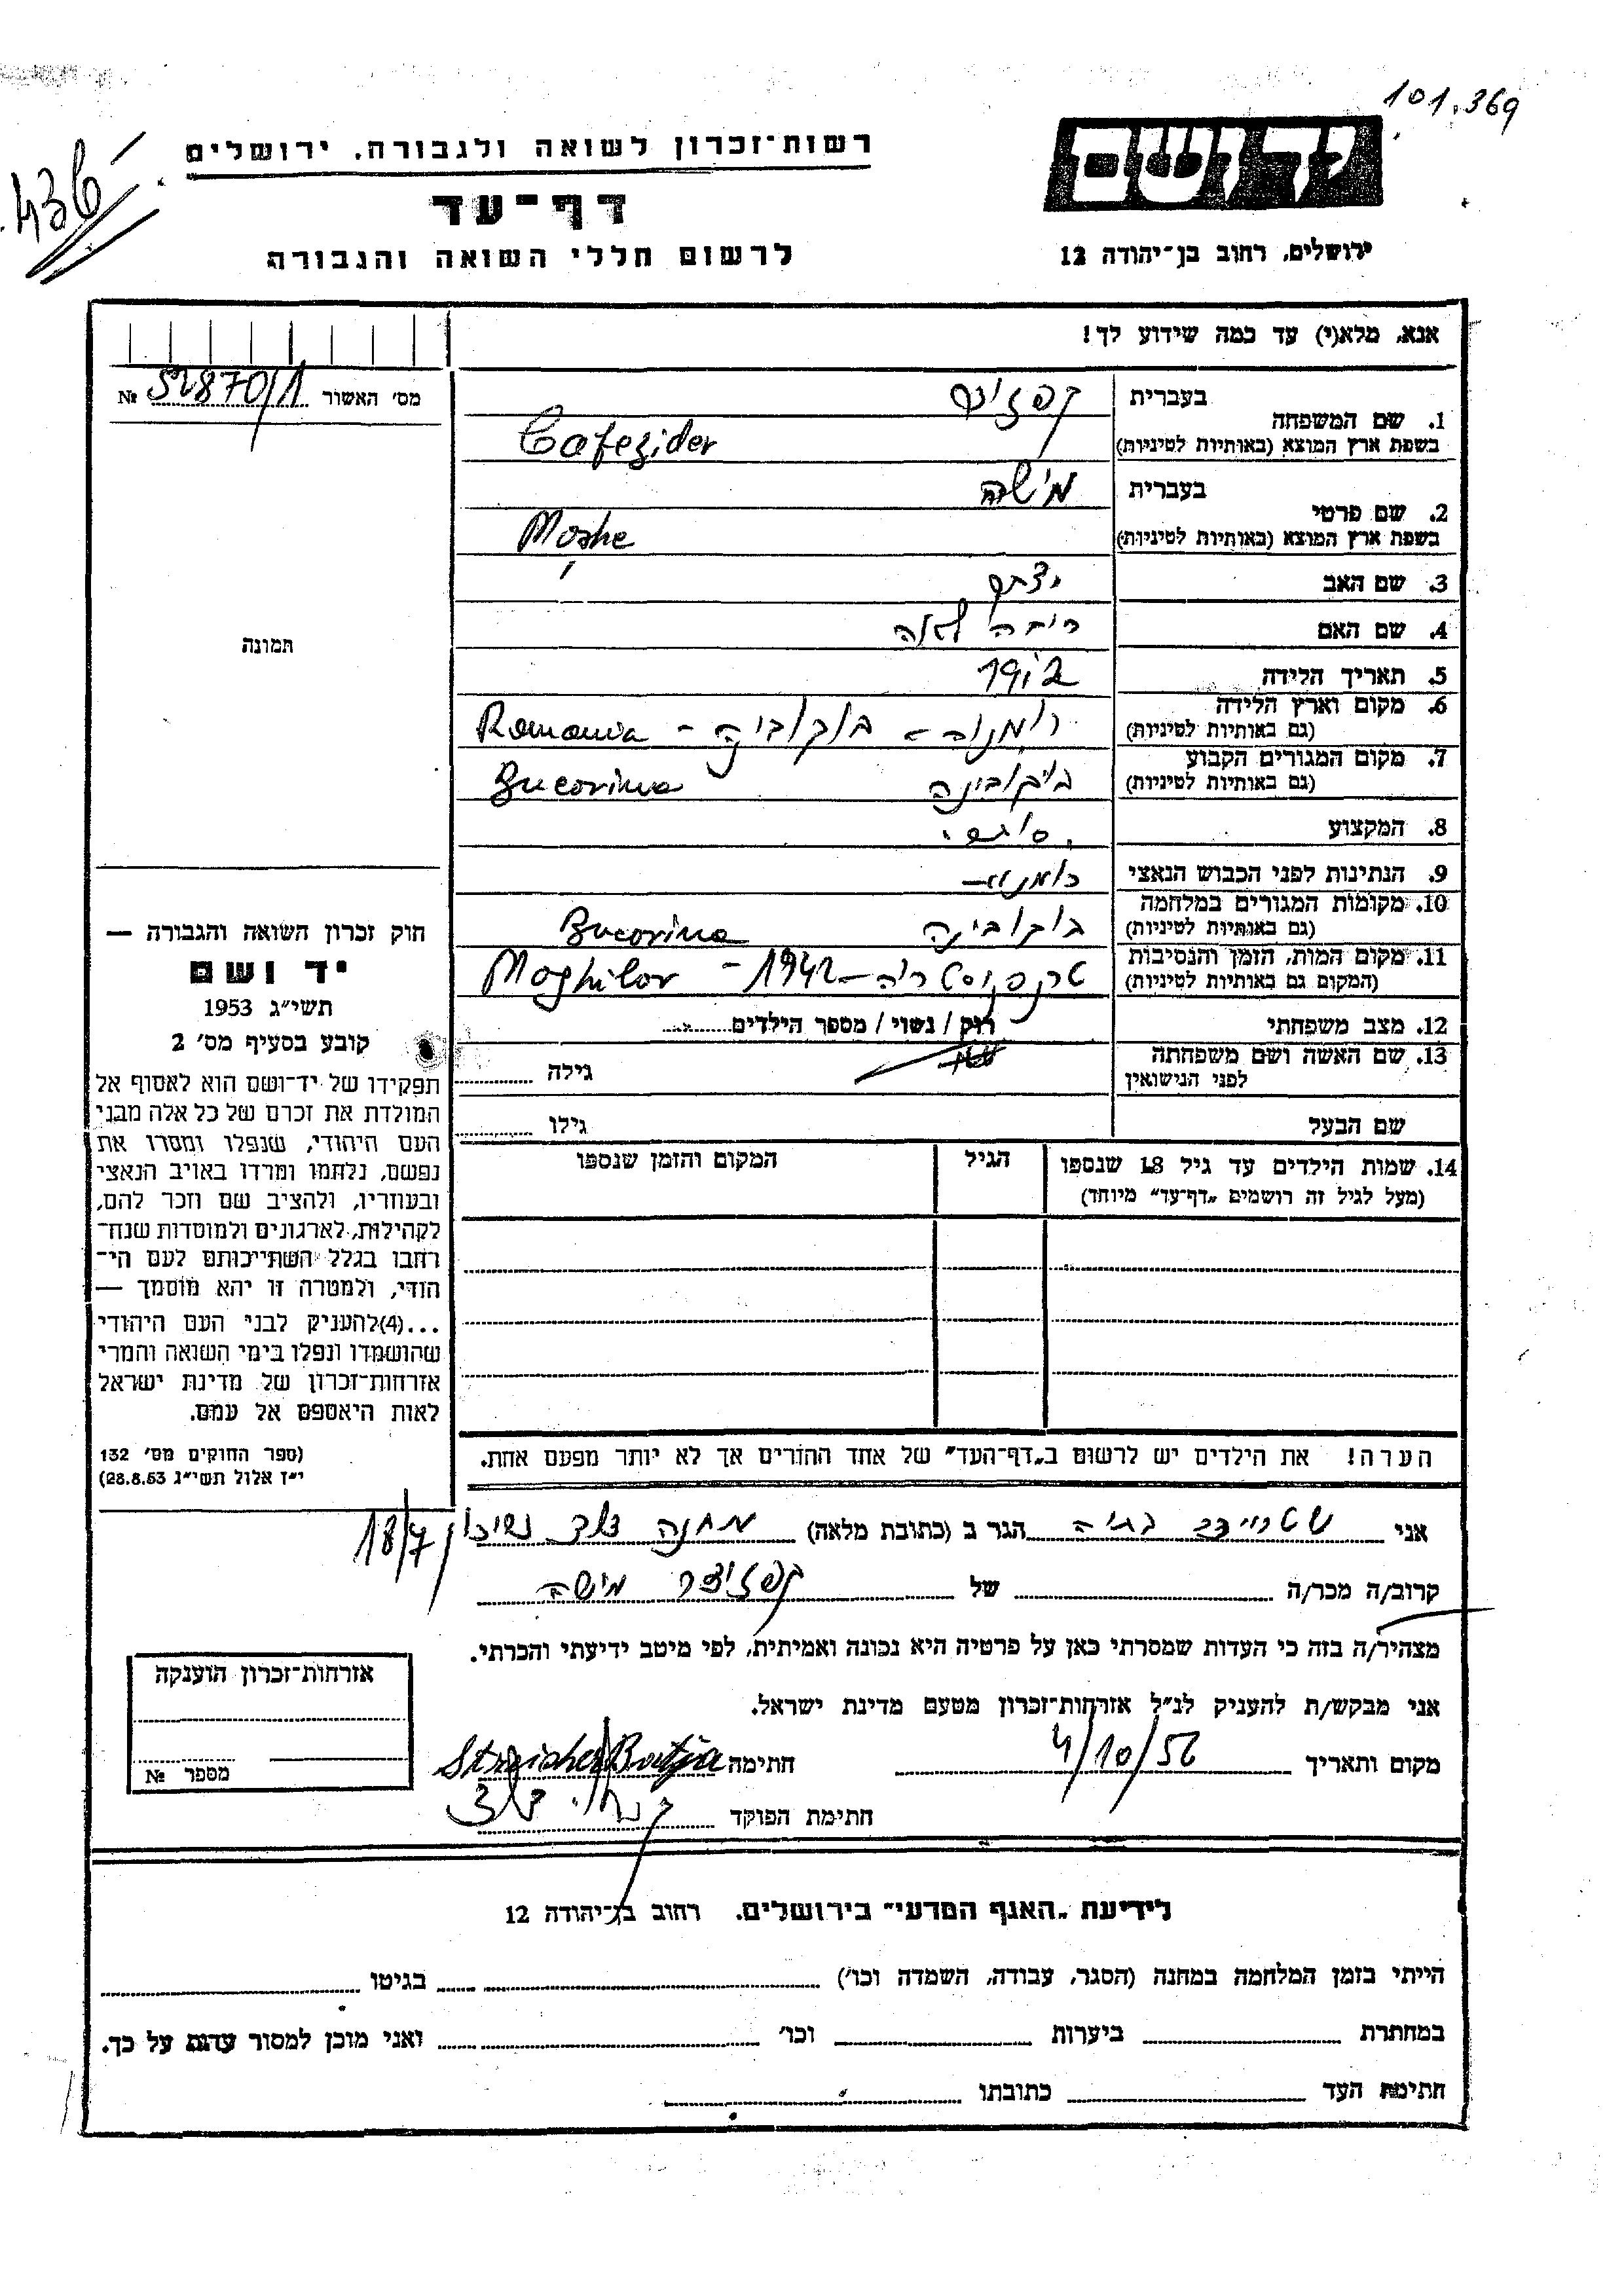 101.369
436
יד ושם
רשות־זכרון לשואה ולגבורה. ירושלים
דף־עד
לרשום חללי השואה והגבורה
ירושלים, רחוב בן־יהודה 12
אנא, מלא(י) עד כמה שידוע לך!
מס׳ האשור № 52870/1
1. שם המשפחה
בעברית
בשפת ארץ המוצא (באותיות לטיניות) Cafezider
2. שם פרטי
בעברית מישה
בשפת ארץ המוצא (באותיות לטיניות) Moshe
3. שם האב
4. שם האם לאה
5. תאריך הלידה
6. מקום וארץ הלידה
(גם באותיות לטיניות) Romania
7. מקום המגורים הקבוע
(גם באותיות לטיניות) בוקובינה Bucovina
8. המקצוע
9. הנתינות לפני הכבוש הנאצי
10. מקומות המגורים במלחמה
(גם באותיות לטיניות) בוקובינה Bucovina
11. מקום המות, הזמן והנסיבות
(המקום גם באותיות לטיניות) 1942 - Moghilov
12. מצב משפחתי רוק / נשוי / מספר הילדים
13. שם האשה ושם משפחתה
לפני הנישואין
גילה
שם הבעל גילו
14. שמות הילדים עד גיל 18 שנספו
(מעל לגיל זה רושמים „דף־עד” מיוחד)
הגיל
המקום והזמן שנספו
הערה! את הילדים יש לרשום ב„דף־העד” של אחד ההורים אך לא יותר מפעם אחת.
תמונה
חוק זכרון השואה והגבורה —
יד ושם
תשי״ג 1953
קובע בסעיף מס׳ 2
תפקידו של יד־ושם הוא לאסוף אל
המולדת את זכרם של כל אלה מבני
העם היהודי, שנפלו ומסרו את
נפשם, נלחמו ומרדו באויב הנאצי
ובעוזריו, ולהציב שם וזכר להם,
לקהילות, לארגונים ולמוסדות שנח־
רחבו בגלל השתייכותם לעם הי־
הודי, ולמטרה זו יהא מוסמך —
...(4)להעניק לבני העם היהודי
שהושמדו ונפלו בימי השואה והמרי
אזרחות־זכרון של מדינת ישראל
לאות היאספם אל עמם.
(ספר החוקים מס׳ 132
י״ז אלול תשי״ג 28.8.53)
אני הגר ב (כתובת מלאה) מחנה 18/7
קרוב/ה מכר/ה של קפזידר מישה
מצהיר/ה בזה כי העדות שמסרתי כאן על פרטיה היא נכונה ואמיתית, לפי מיטב ידיעתי והכרתי.
אני מבקש/ת להעניק לנ״ל אזרחות־זכרון מטעם מדינת ישראל.
מקום ותאריך 4/10/56 חתימה Streicher Batja
חתימת הפוקד
אזרחות־זכרון הוענקה
מספר №
לידיעת „האגף המדעי” בירושלים. רחוב בן־יהודה 12
הייתי בזמן המלחמה במחנה (הסגר, עבודה, השמדה וכו׳) בגיטו
במחתרת ביערות וכו׳ ואני מוכן למסור עדות על כך.
חתימת העד כתובתו